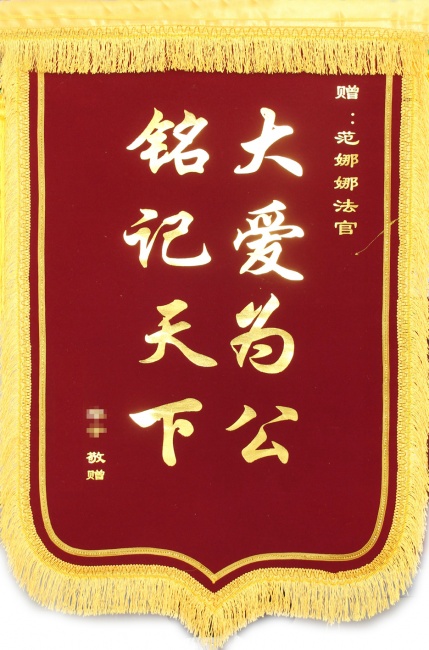 赠：范娜娜法官
大爱为公
铭记天下
敬赠